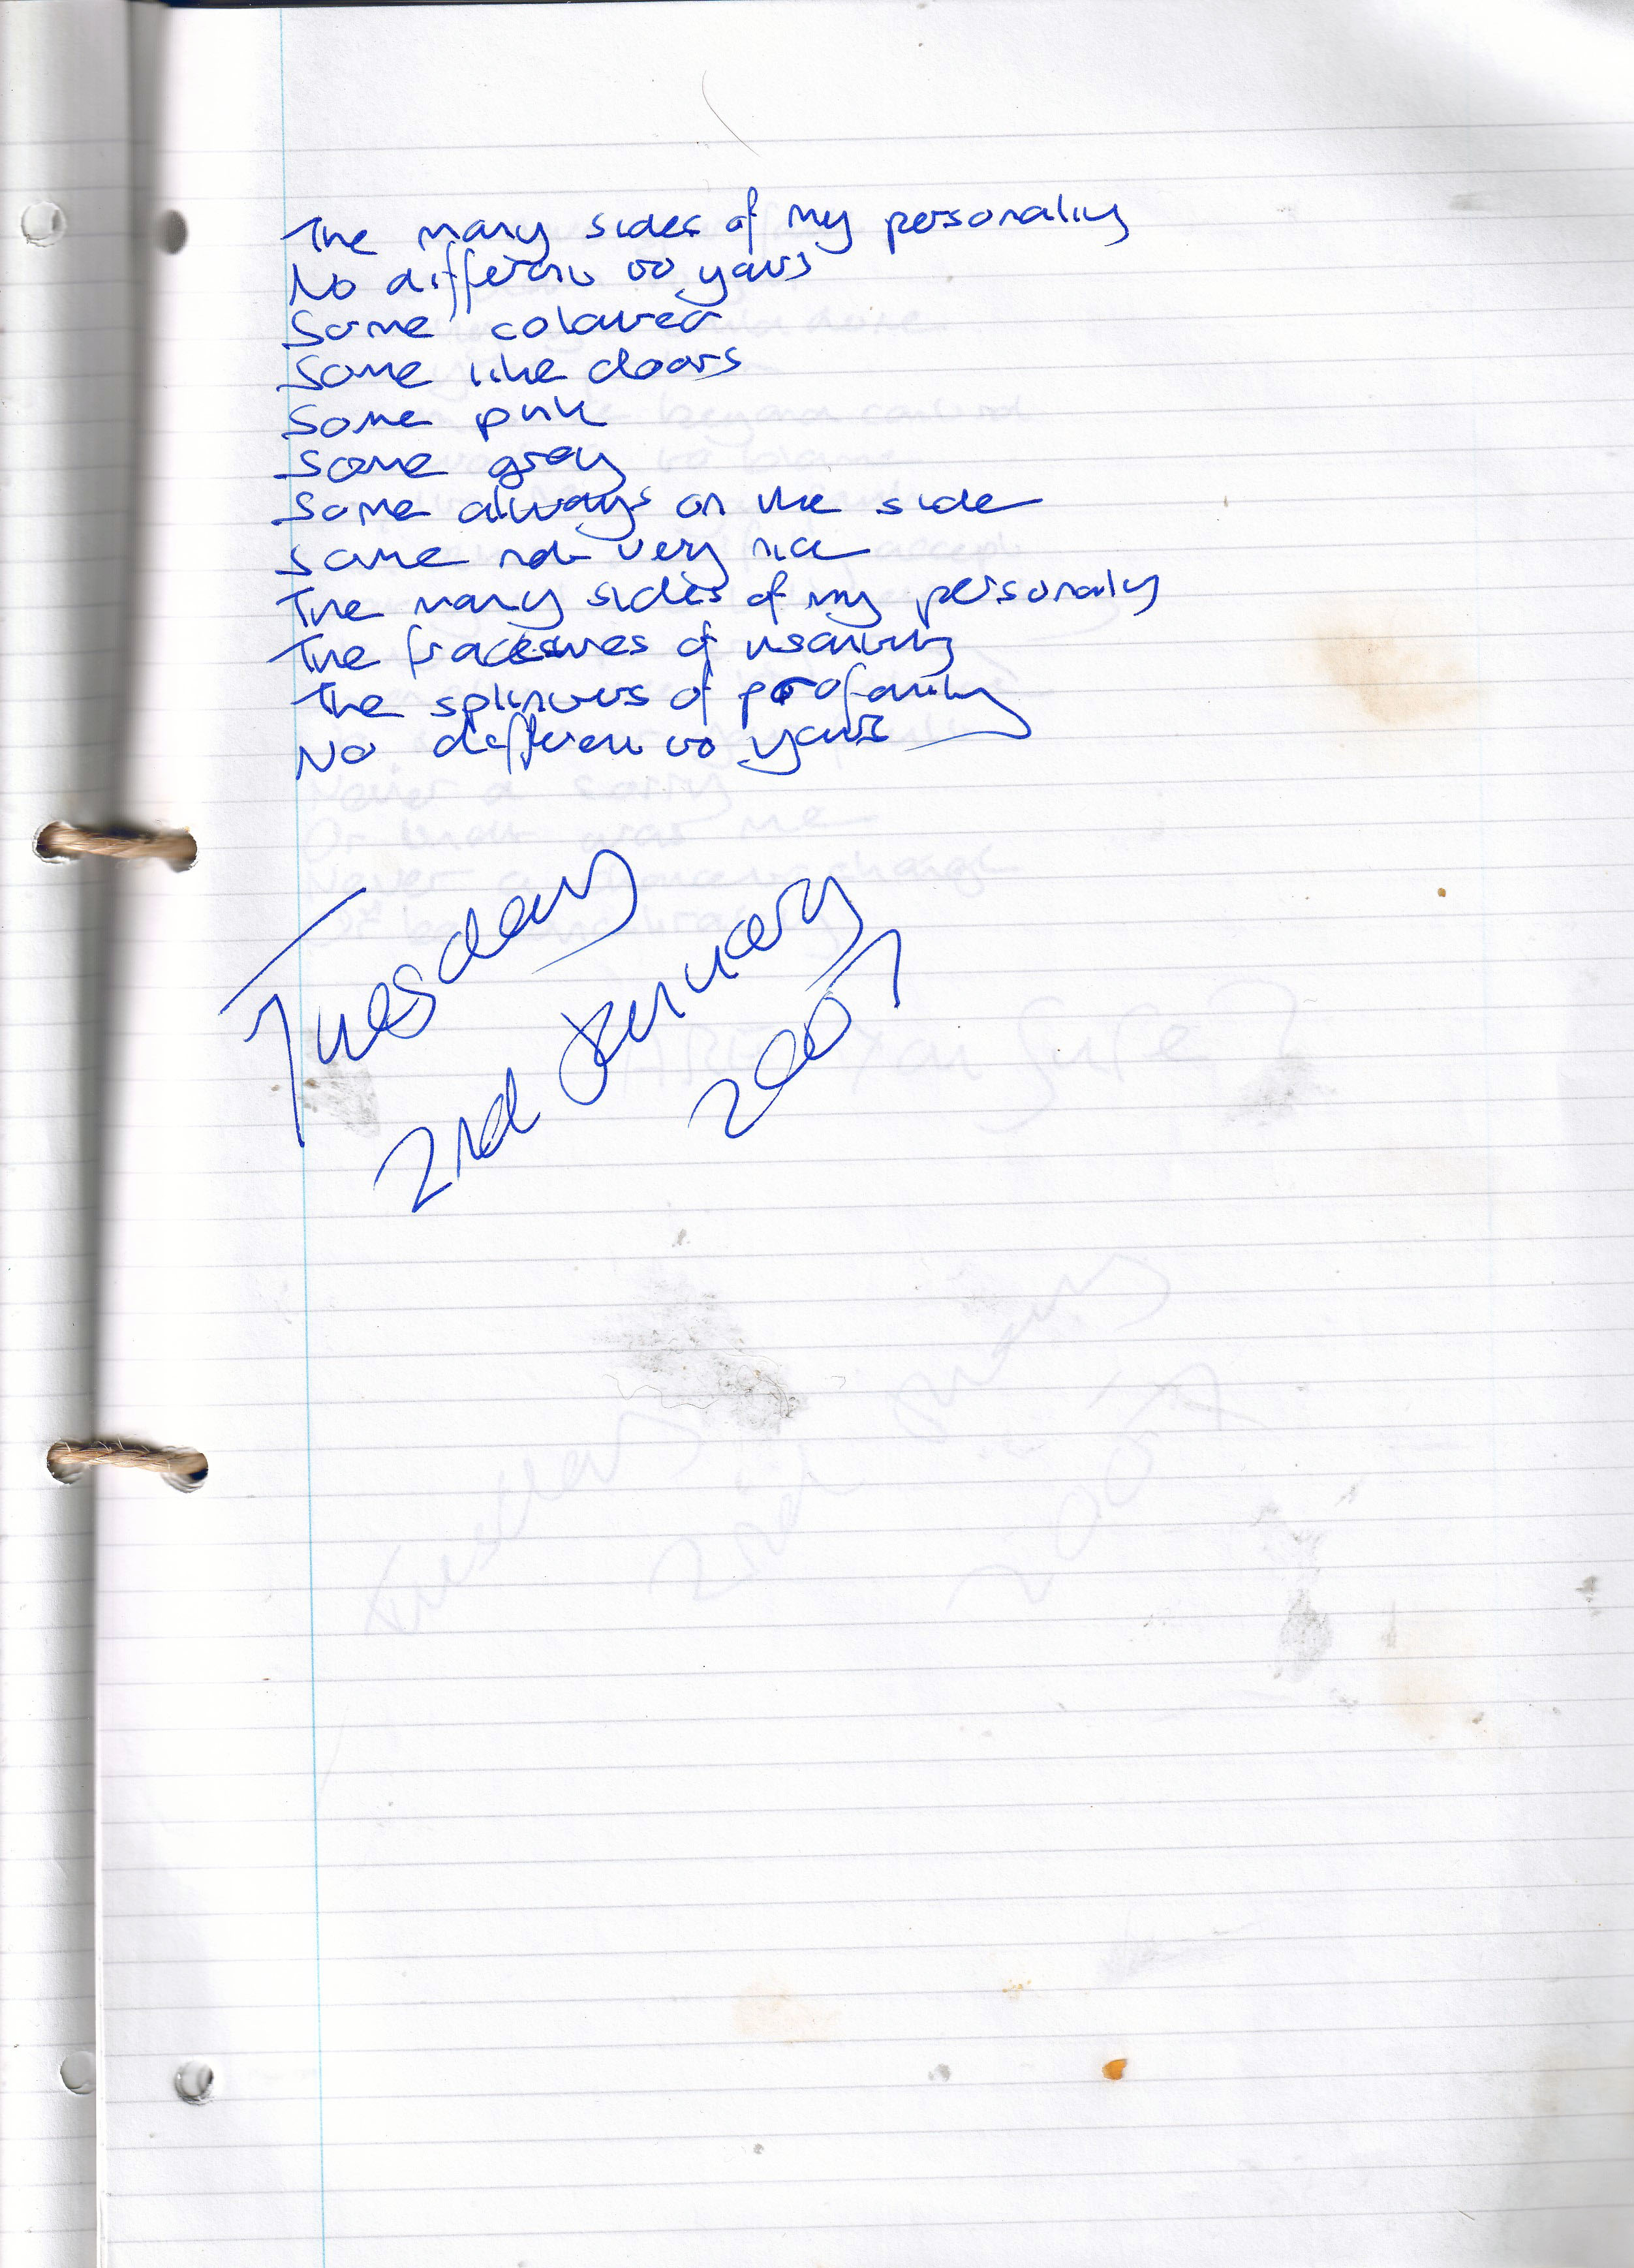 The many sides of my personality
No different to yours
Some coloured
Some like doors
Some pink
Some grey
Some always on the side
Some not very nice
The many sides of my personality
The fractures of insanity
The splinters of profanity
No different to yours
Tuesday
2nd January
2007